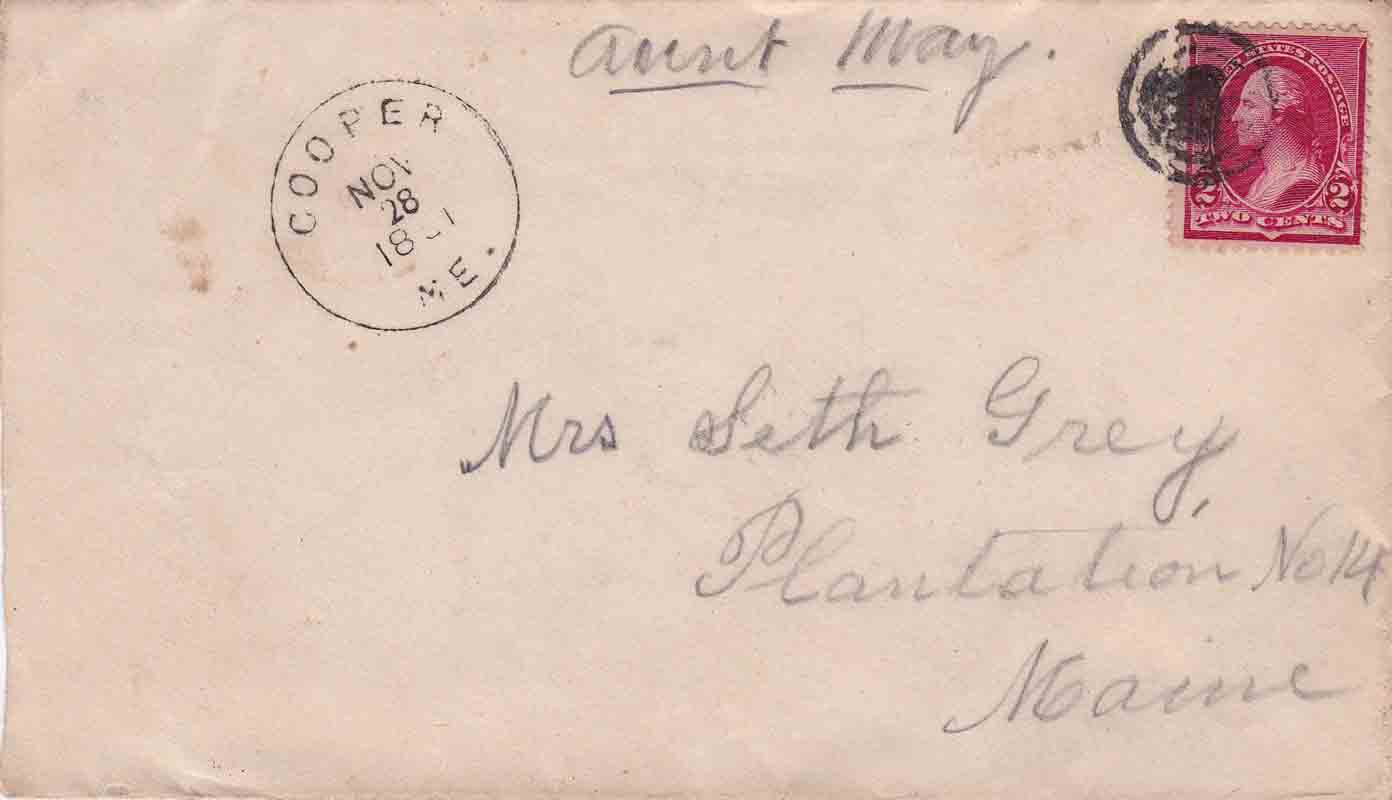 Aunt May.
COOPER
NOV
28
18 1
ME.
STATES POSTAGE
2 2
TWO CENTS
Mrs Seth Grey,
Plantation No 14
Maine